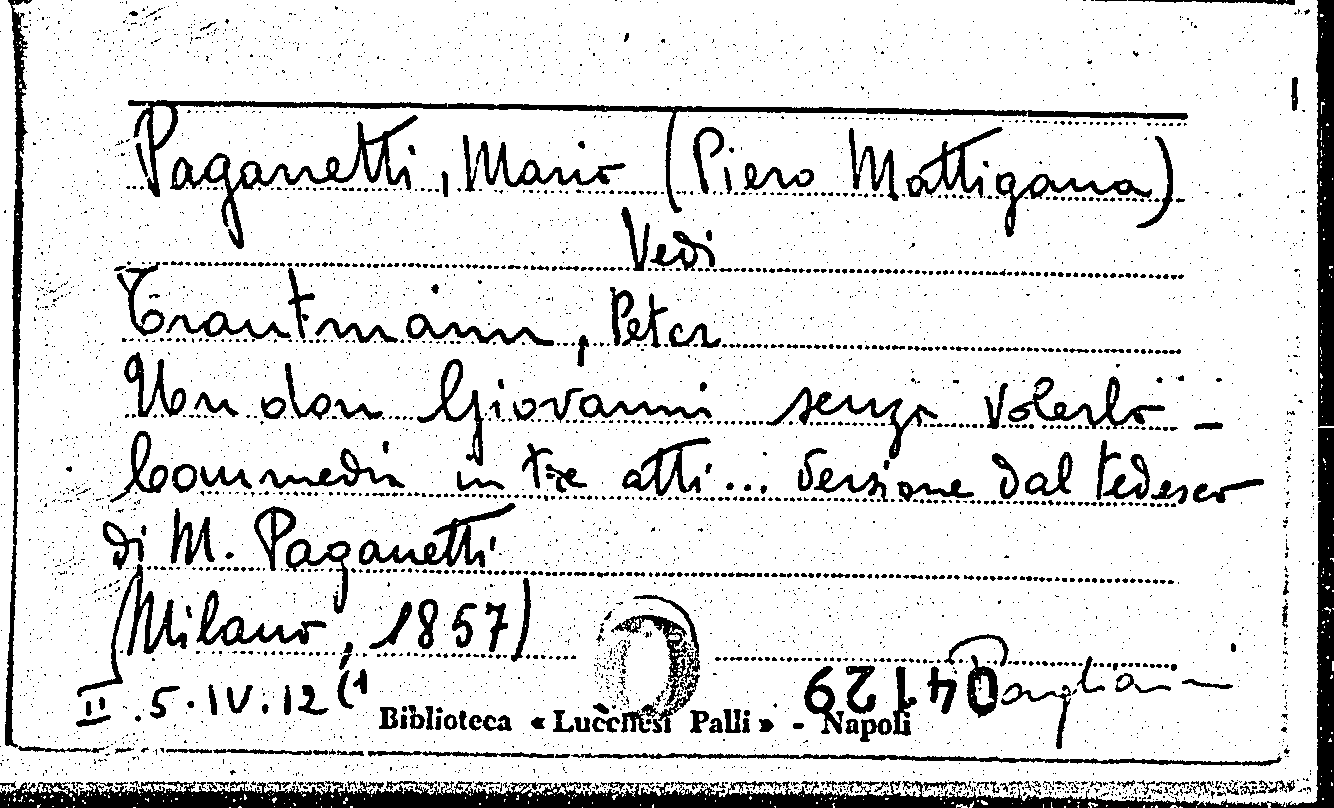 Paganetti, Mario (Piero Mattigana)
Vedi
Trautmann, Peter
Un don Giovanni senza volerlo -
Commedia in tre atti... Versione dal tedesco
di M. Paganetti
(Milano, 1857)
II .5.IV.12 (1
04129
Biblioteca « Lucchesi Palli » - Napoli